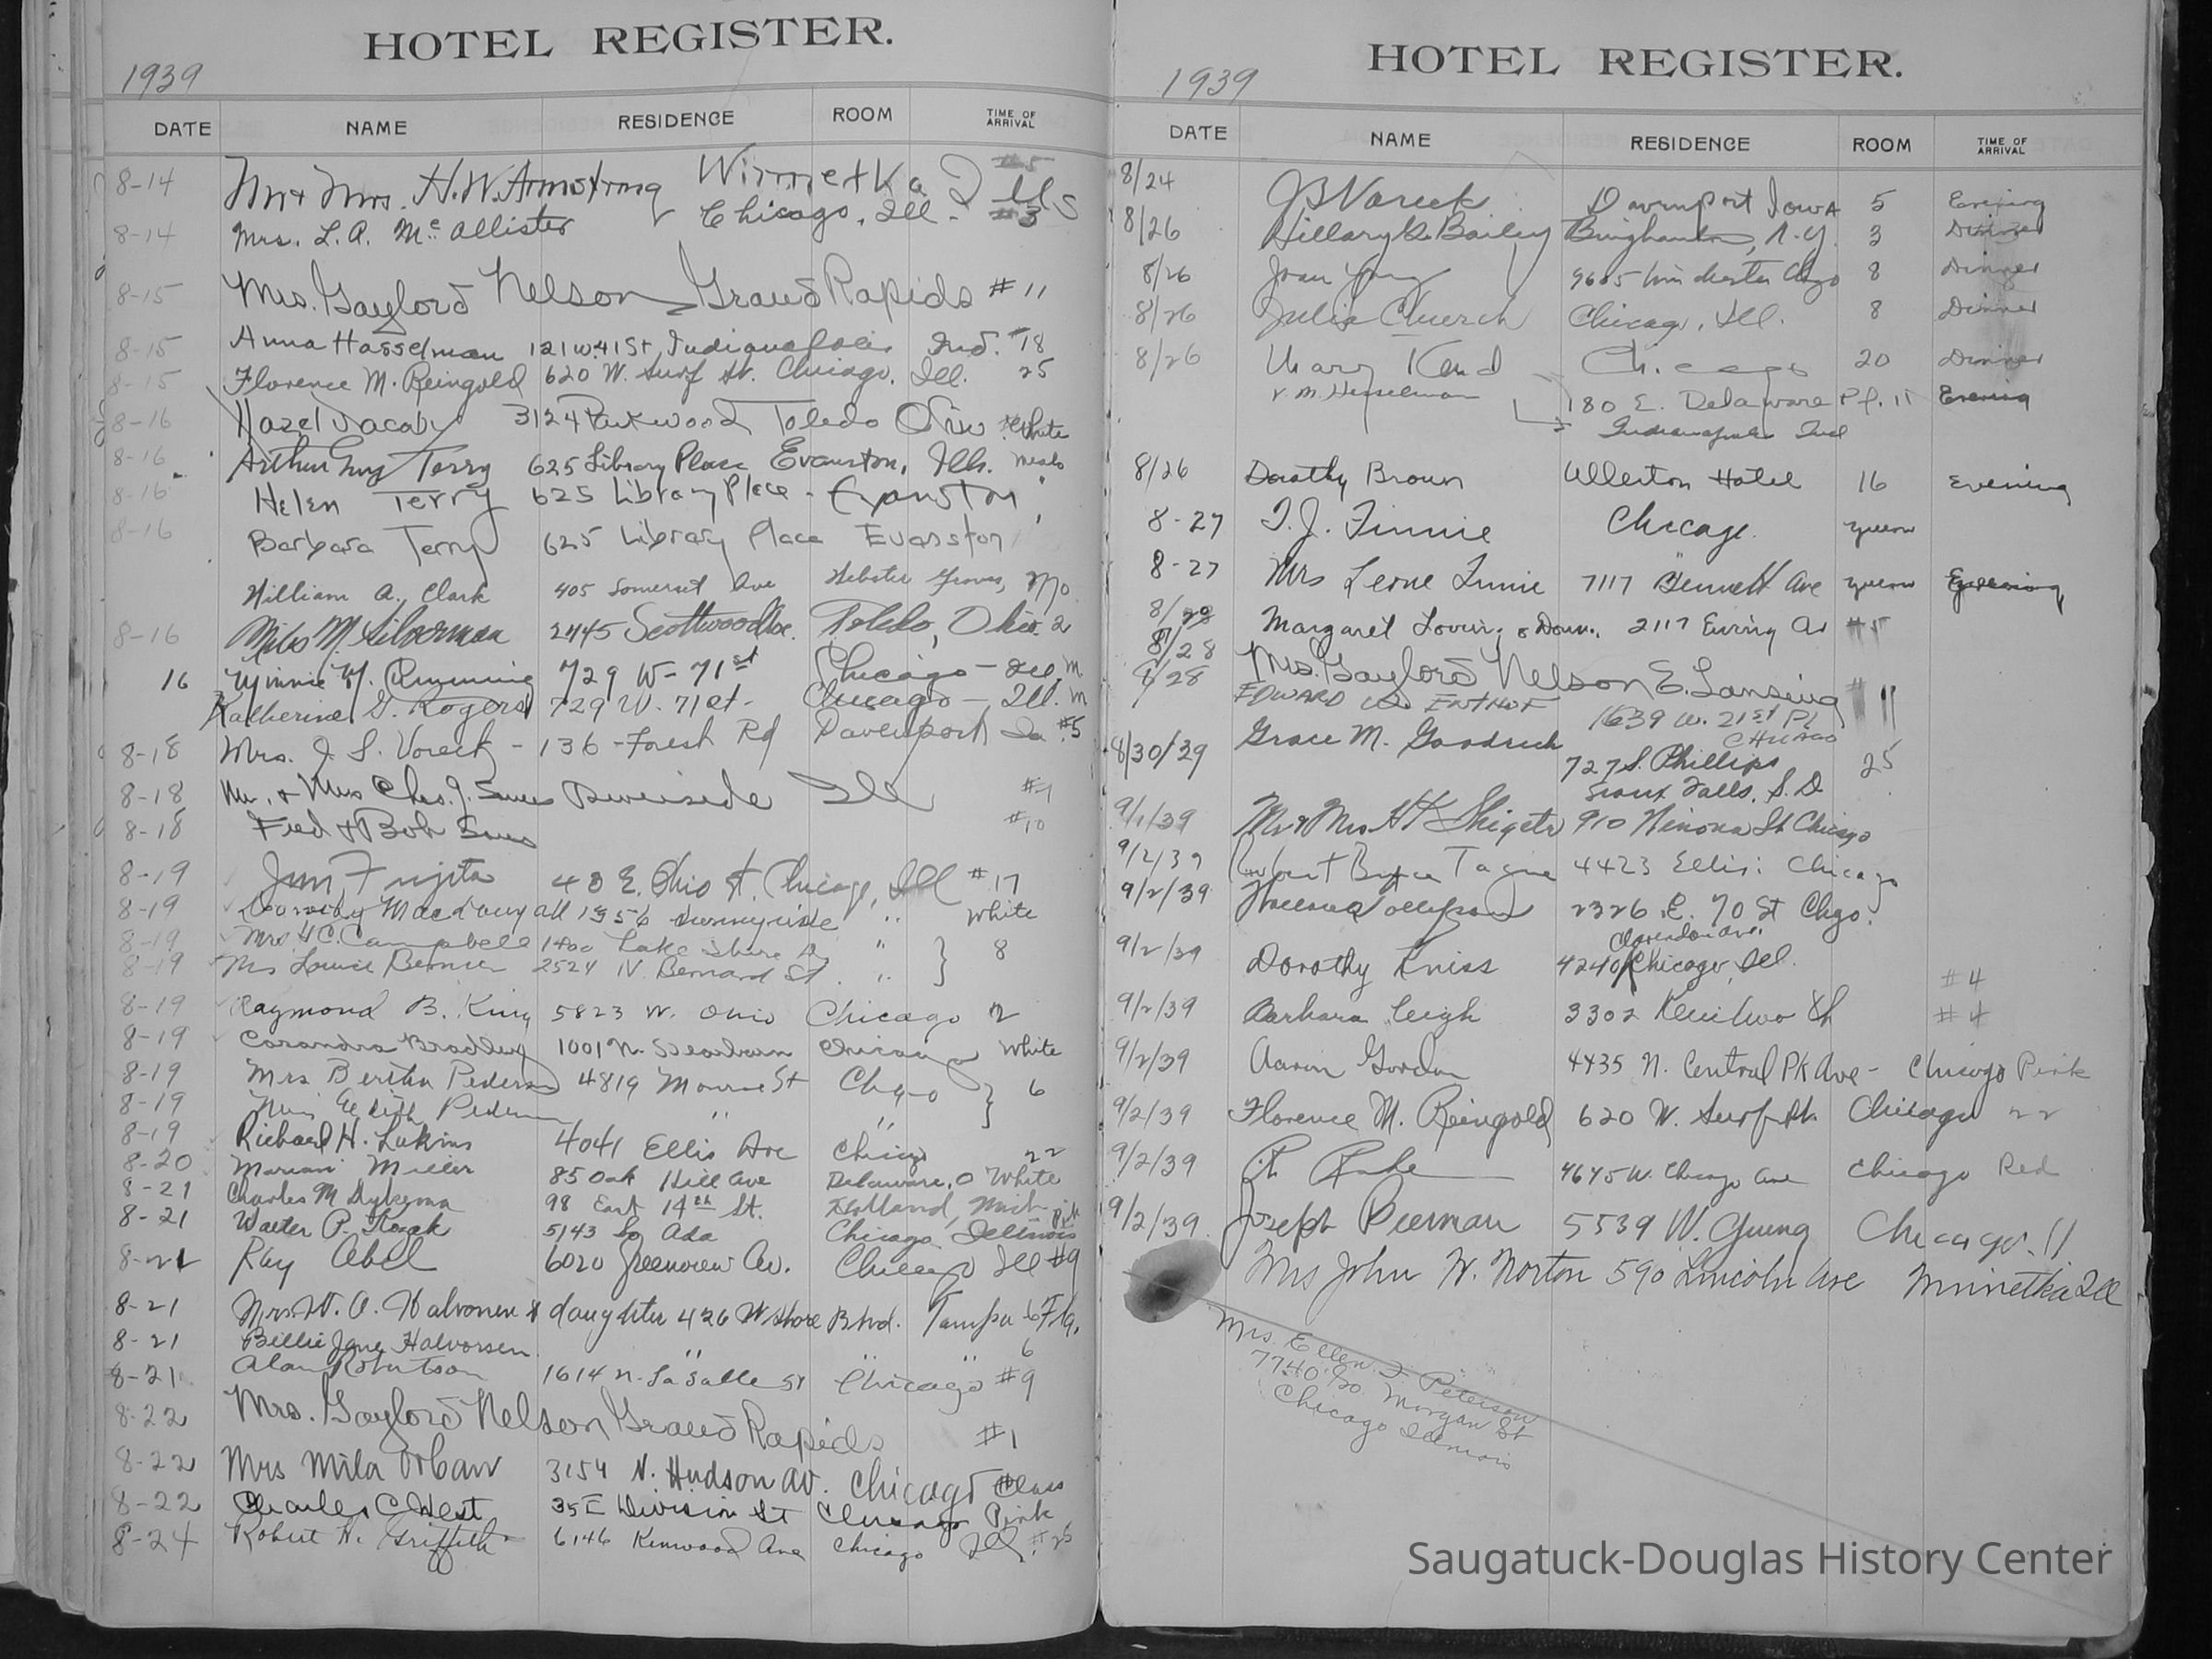 HOTEL REGISTER.
1939
DATE NAME RESIDENCE ROOM TIME OF ARRIVAL
8-14 Mr + Mrs. H.W. Armstrong Winnetka Ills #5
8-14 Mrs. L.A. Mc Allister Chicago, Ill. #3
8-15 Mrs. Gaylord Nelson Grand Rapids #11
8-15 Anna Hasselman 121 W. 41 St Indianapolis Ind. #18
8-15 Florence M. Reingold 620 W. Surf St. Chicago, Ill. 25
8-16 Hazel Jacoby 3124 Parkwood Toledo Ohio White
8-16 Arthur Guy Terry 625 Library Place Evanston, Ills. Meals
8-16 Helen Terry 625 Library Place - Evanston
8-16 Barbara Terry 625 Library Place Evanston
William A. Clark 405 Somerset Ave Webster Groves, Mo.
8-16 M. Silverman 2445 Scottwood Ave. Toledo, Ohio. 2
16 Minnie M. 729 W - 71st Chicago - Ill. M
Katherine G. Rogers 729 W. 71 st - Chicago - Ill. M
8-18 Mrs. J. S. Voreck - 136 - Forest Rd Davenport Ia #5
8-18 Mr. + Mrs Chas. J. Riverside Ill #9
8-18 Fred + Bob #10
8-19 Jun Fujita 48 E. Ohio St. Chicago, Ill #17
8-19 Dorothy Macdougall 1356 Sunnyside " White
8-19 Mrs H C. Campbell 1400 Lake Shore Dr " } 8
8-19 Mrs Louise Bernier 2524 N. Bernard St. "
8-19 Raymond B. King 5823 W. Ohio Chicago 2
8-19 Bradley 1001 N. Dearborn Chicago White
8-19 Mrs Bertha Pedersen 4819 Monroe St Chgo } 6
8-19 Miss Edith Pedersen " "
8-19 Richard H. Lukins 4041 Ellis Ave Chicago 22
8-20 Marian Miller 85 Oak Hill Ave Delaware, O White
8-21 Charles M Dykema 98 East 14th St. Holland, Mich. Pink
8-21 Walter P. 5143 So Ada Chicago Illinois
8-21 Ray Abel 6020 Greenview Av. Chicago Ill #9
8-21 Mrs. W. O. Halvorsen & daughter 426 W Shore Blvd. Tampa 6 Fla.
8-21 Billie Jane Halvorsen " " " 6
8-21 Alan Robertson 1614 N. La Salle St Chicago #9
8-22 Mrs. Gaylord Nelson Grand Rapids #1
8-22 Mrs Mila Orban 3154 N. Hudson Av. Chicago Class
8-22 Charles C West 35 E Division St Chicago Pink
8-24 Robert H. Griffith 6146 Kenwood Ave Chicago Ill. #25
HOTEL REGISTER.
1939
DATE NAME RESIDENCE ROOM TIME OF ARRIVAL
8/24 Davenport Iowa 5 Evening
8/26 Hillary G. Bailey Binghamton, N.Y. 3 Dinner
8/26 Joan Young 9605 Winchester Chgo 8 Dinner
8/26 Julia Church Chicago, Ill. 8 Dinner
8/26 Mary Chicago 20 Dinner
+ M. Hesselman 180 E. Delaware Pl. 11 Evening
Indianapolis Ind
8/26 Dorothy Brown Allerton Hotel 16 Evening
8-27 T. J. Finnie Chicago
8-27 Mrs Leone Finnie 7117 Bennett Ave Evening
8/28 Margaret 2117 Ewing Av #5
8/28 Mrs. Gaylord Nelson E. Lansing # 11
8/28 EDWARD 1639 W. 21st Pl
CHICAGO
8/30/39 Grace M. Goodrich 727 S. Phillips 25
Sioux Falls, S.D.
9/1/39 Mr & Mrs H K Shigeta 910 Winona St Chicago
9/2/39 Robert Bruce Tague 4423 Ellis: Chicago
9/2/39 2326 E. 70 St Chgo.
Clarendon Ave.
9/2/39 Dorothy Kniss 4240 Chicago, Ill. #4
9/2/39 Barbara Leigh 3302 #4
9/2/39 Aaron Gordon 4435 N. Central Pk Ave - Chicago Pink
9/2/39 Florence M. Reingold 620 W. Surf St. Chicago 22
9/2/39 4645 W. Chicago Ave Chicago Red
9/2/39 Joseph Pierman 5539 W. Chicago. 11
Mrs John W. Norton 590 Lincoln Ave Winnetka Ill
Mrs. Ellen J. Peterson
7740 So Morgan St
Chicago Illinois
Saugatuck-Douglas History Center